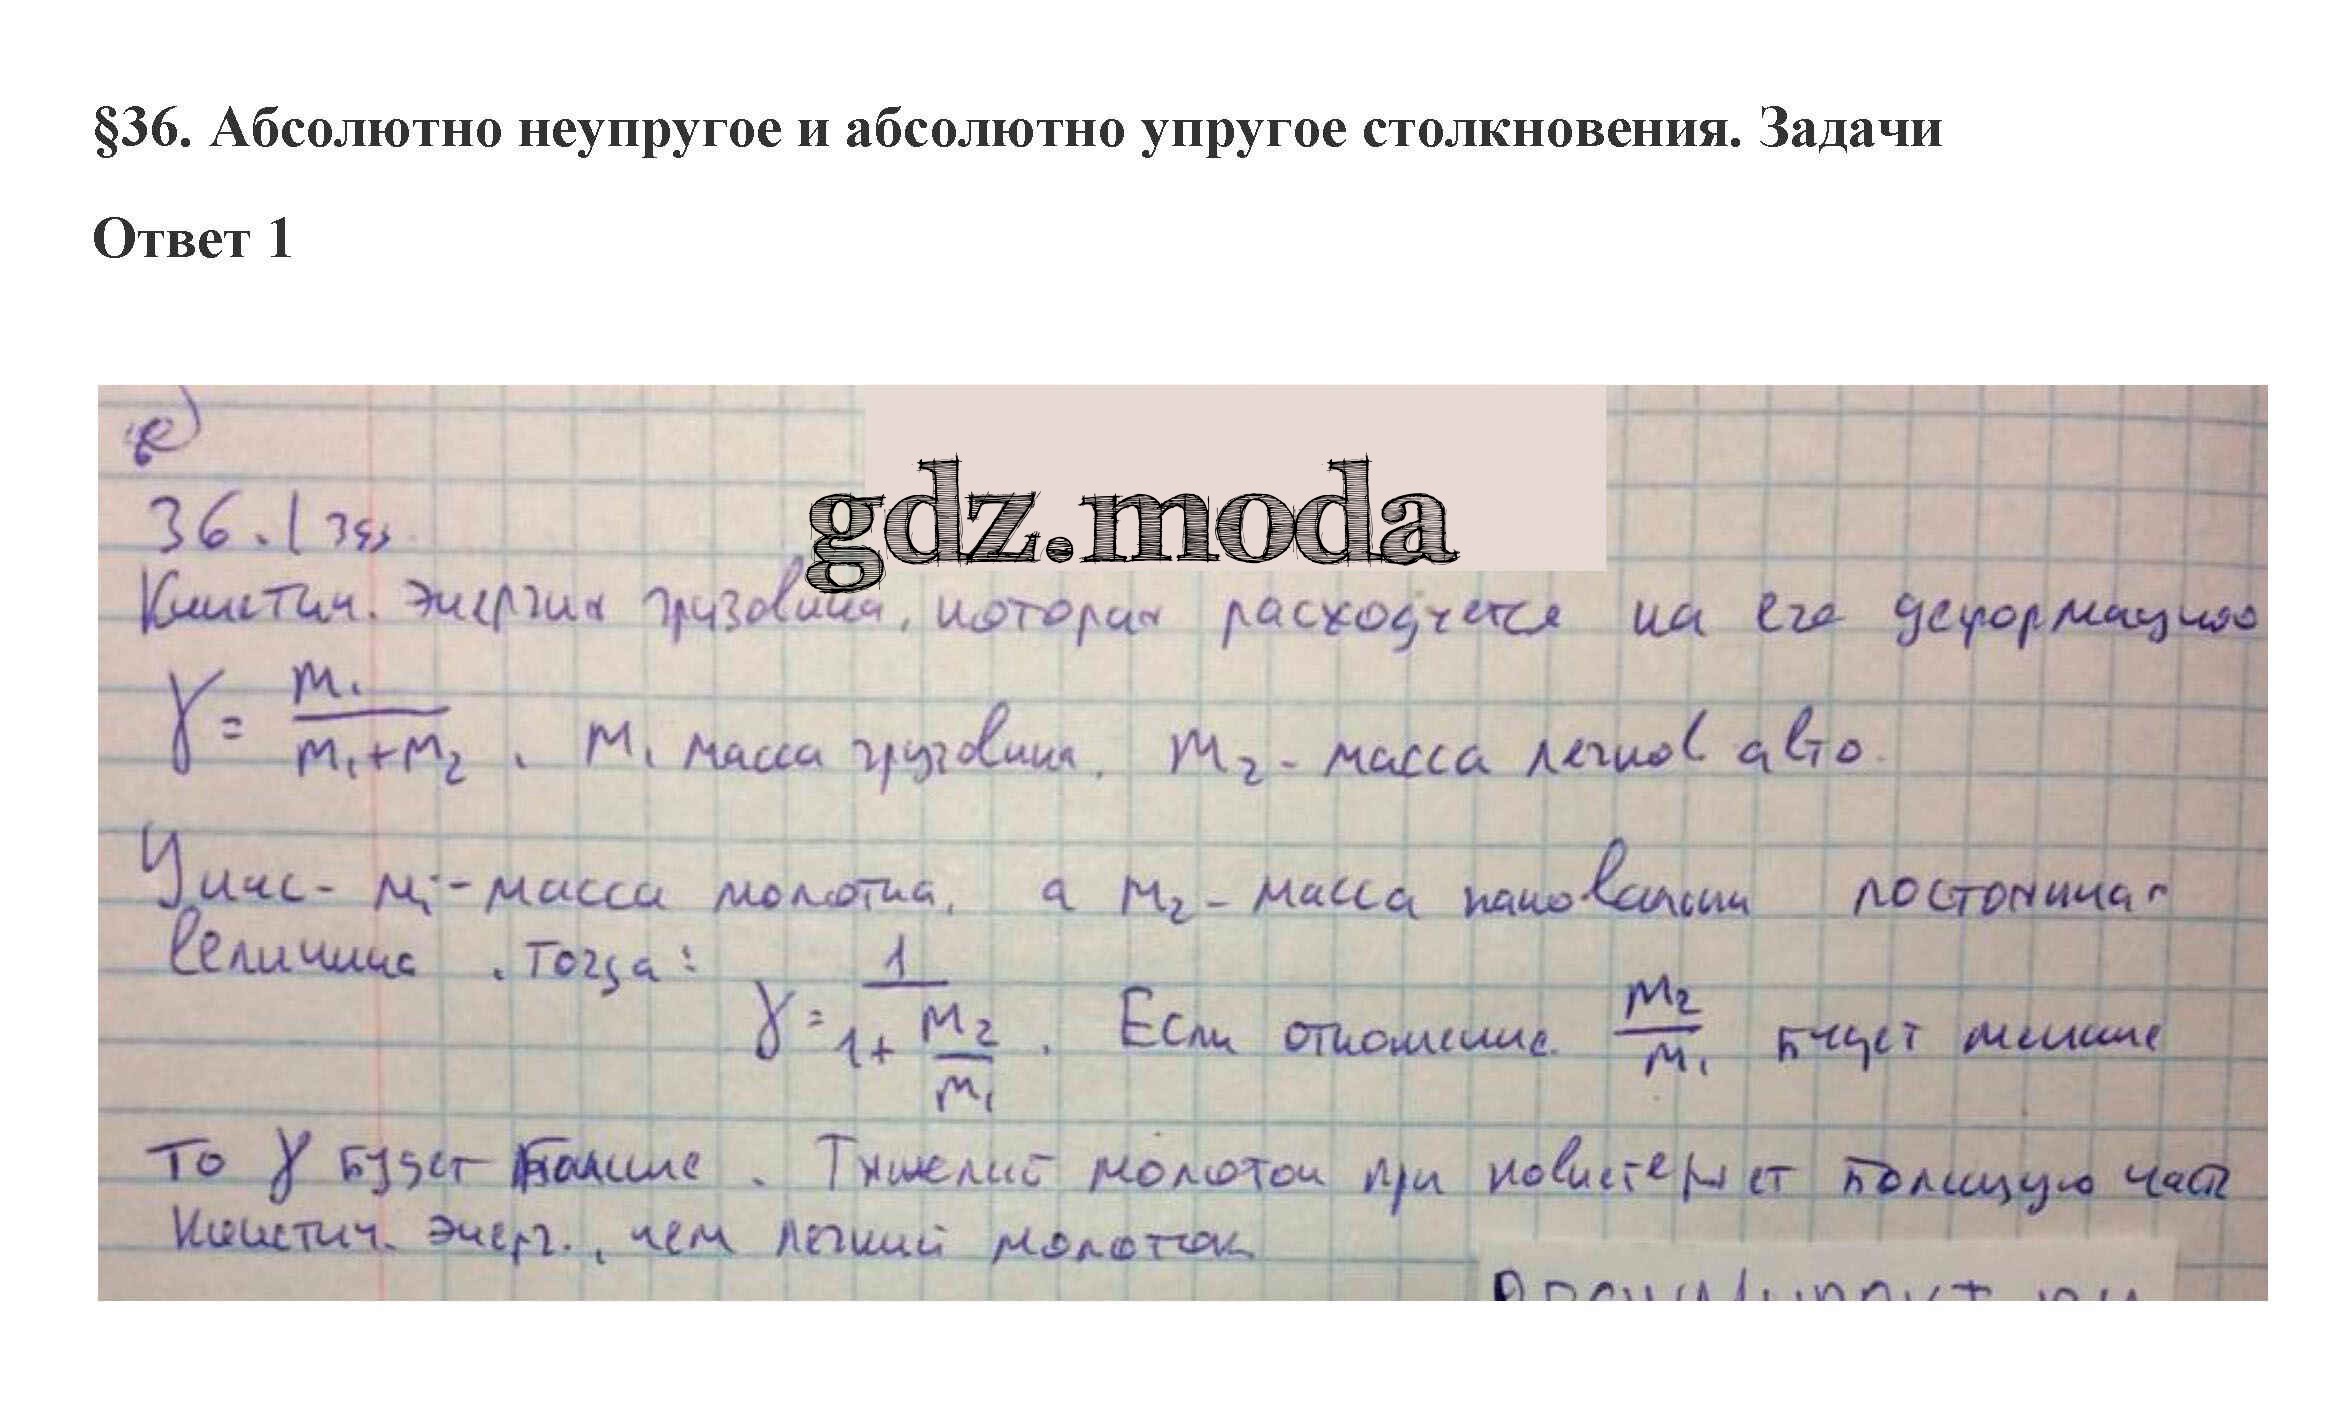 §36. Абсолютно неупругое и абсолютно упругое столкновения. Задачи
Ответ 1
gdz.moda
36.1 зад.
Кинетич. энергия грузовика, которая расходуется на его деформацию
γ = m₁/(m₁+m₂), m₁ масса грузовика, m₂ - масса легков авто.
У нас - m₁ - масса молотка, а m₂ - масса наковальни постоянная
величина. Тогда:
γ = 1/(1 + m₂/m₁). Если отношение m₂/m₁ будет меньше
то γ будет больше. Тяжелий молоток при теряет большую часть
кинетич. энерг., чем легкий молоток